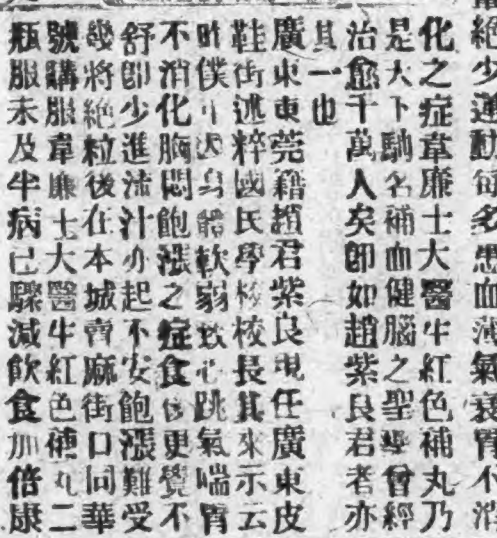 絶少運動每多患血薄氣衰胃不消
化之症韋廉士大醫生紅色補丸乃
是大下馳名補血健腦之聖藥曾經
治愈千萬人矣即如趙紫良君者亦
其一也
廣東東莞籍趙君紫良現任廣東皮
鞋街述粹國民學校校長其來示云
昨僕 身體軟弱致心跳氣喘胃
不消化胸悶飽漲之症食後更覺不
舒即少進流汁亦起不安飽漲難受
幾將絶粒後在本城賣麻街口同華
號購服韋廉士大醫生紅色補丸二
瓶服未及半病已驟減飲食加倍康